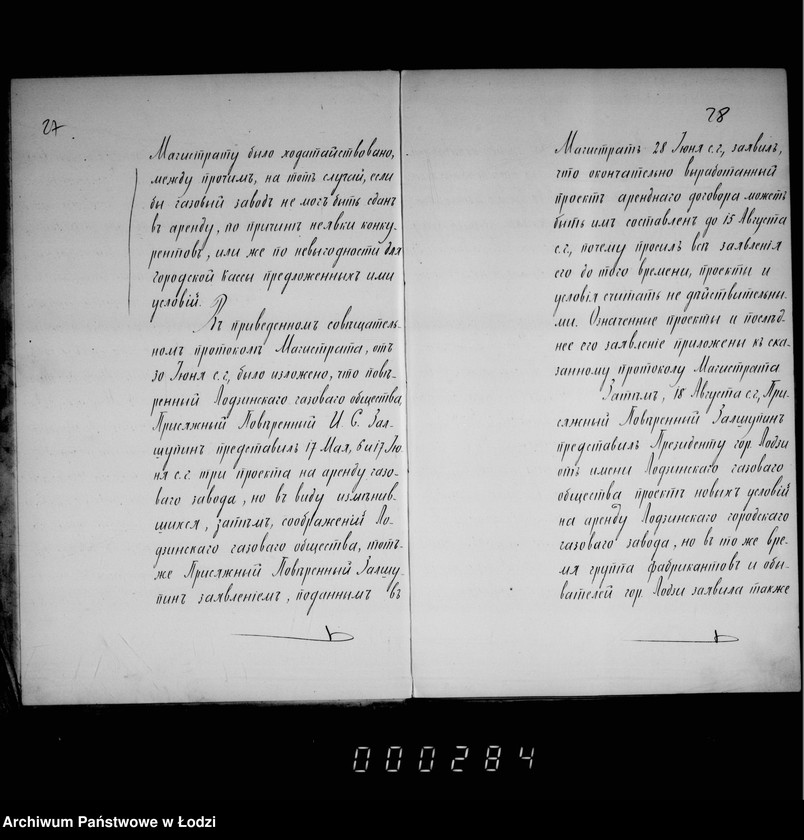 27
Магистрату было ходатайствовано,
между прочимъ, на тотъ случай, если
бы газовый заводъ не могъ быть сданъ
въ аренду, по причинѣ неявки конку-
рентовъ, или же по невыгодности для
городской кассы предложенныхъ ими
условій.
Въ приведенномъ совѣщатель-
номъ протоколѣ Магистрата, отъ
30 Іюня с.г., было изложено, что повѣ-
ренный Лодзинскаго газоваго общества
Присяжный Повѣренный И. С. Зал-
шупинъ представилъ 17 Мая, 6 и 17 Ію-
ня с.г. три проекта на аренду газо-
ваго завода, но въ виду измѣнив-
шихся, затѣмъ, соображеній Ло-
дзинскаго газоваго общества, тотъ-
же Присяжный Повѣренный Залшу-
пинъ заявленіемъ, поданнымъ въ
28
Магистратъ 28 Іюня с.г., заявилъ,
что окончательно выработанный
проектъ аренднаго договора можетъ
быть имъ составленъ до 15 Августа
с.г., почему просилъ всѣ заявленія
его до того времени, проекты и
условія считать не дѣйствительны-
ми. Означенные проекты и послѣд-
нее его заявленіе приложены къ ска-
занному протоколу Магистрата
Затѣмъ, 18 Августа с.г., При-
сяжный Повѣренный Залшупинъ
представилъ Президенту гор. Лодзи
отъ имени Лодзинскаго газоваго
общества проектъ новыхъ условій
на аренду Лодзинскаго городскаго
газоваго завода, но въ то же вре-
мя группа фабрикантовъ и обы-
вателей гор. Лодзи заявила также
000284
Archiwum Państwowe w Łodzi